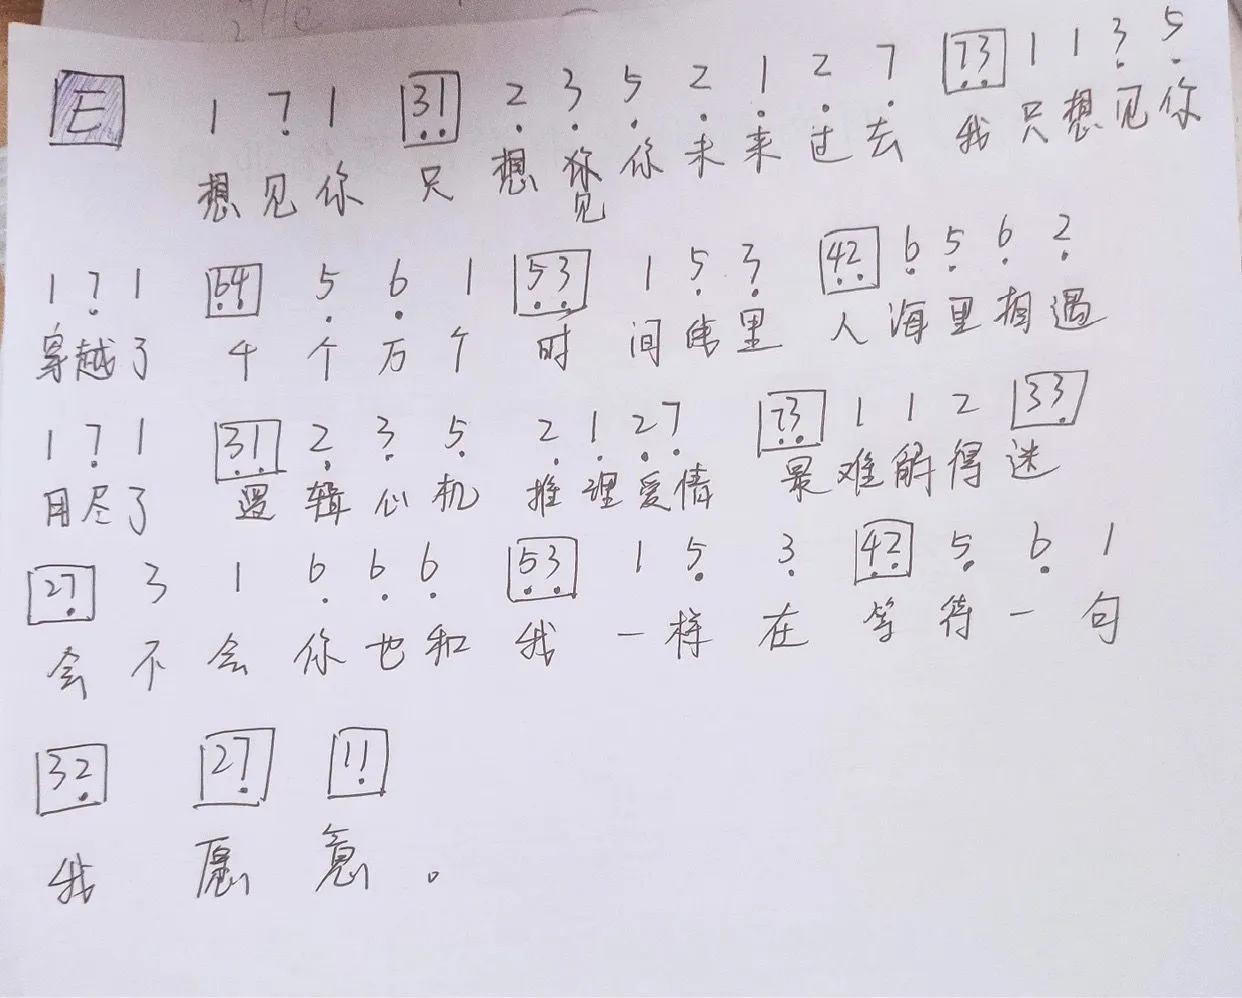 E 1 7̣ 1 3̣1̣ 2̣ 3̣ 5̣ 2̣ 1̣ 2̣ 7̣ 7̣3̣ 1 1 3̣ 5̣
想见你 只想你见你未来过去 我只想见你
1 7̣ 1 6̣4̣ 5̣ 6̣ 1 5̣3̣ 1 5̣ 3̣ 4̣2̣ 6̣ 5̣ 6̣ 2̣
穿越了 千个万个 时间线里 人海里相遇
1 7̣ 1 3̣1̣ 2̣ 3̣ 5̣ 2̣ 1̣ 2̣7̣ 7̣3̣ 1 1 2 33̣
用尽了 逻辑心机 推理爱情 最难解得迷
27̣ 3 1 6̣ 6̣ 6̣ 5̣3̣ 1 5̣ 3̣ 4̣2̣ 5̣ 6̣ 1
会不会你也和我一样在等待一句
32̣ 27̣ 11̣
我愿意。